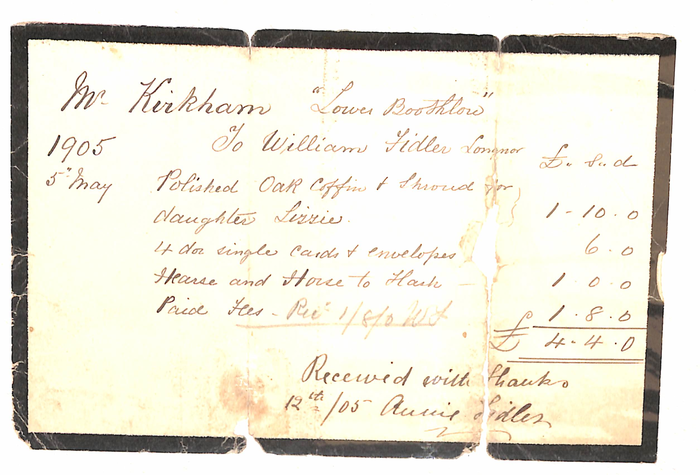 Mr Kirkham "Lower Boothlow"
1905 To William Fidler Longnor £. s. d
5" May Polished Oak Coffin & Shroud for
daughter Lizzie 1-10.0
4 doz single cards & envelopes 6.0
Hearse and Horse to Flash — 1.0.0
Paid Fees - Recd 1/8/0 W F 1.8.0
£ 4.4.0
Received with thanks
12th /05 Annie Fidler